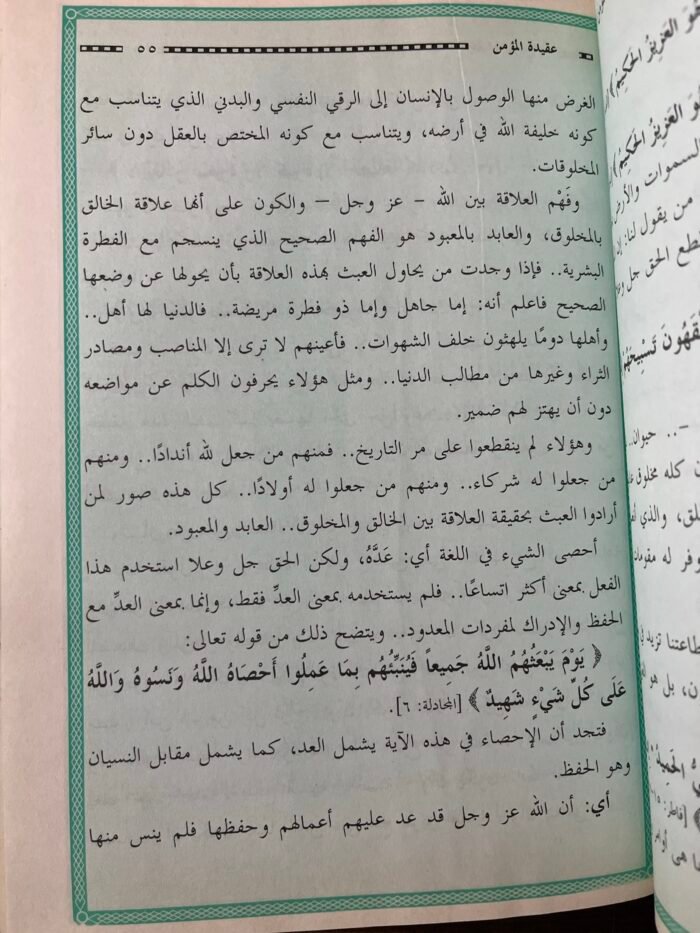 عقيدة المؤمن ٥٥
الغرض منها الوصول بالإنسان إلى الرقي النفسي والبدني الذي يتناسب مع
كونه خليفة الله في أرضه، ويتناسب مع كونه المختص بالعقل دون سائر
المخلوقات.
وفَهْم العلاقة بين الله – عز وجل – والكون على أنها علاقة الخالق
بالمخلوق، والعابد بالمعبود هو الفهم الصحيح الذي ينسجم مع الفطرة
البشرية.. فإذا وجدت من يحاول العبث بهذه العلاقة بأن يحولها عن وضعها
الصحيح فاعلم أنه: إما جاهل وإما ذو فطرة مريضة.. فالدنيا لها أهل..
وأهلها دومًا يلهثون خلف الشهوات.. فأعينهم لا ترى إلا المناصب ومصادر
الثراء وغيرها من مطالب الدنيا.. ومثل هؤلاء يحرفون الكلم عن مواضعه
دون أن يهتز لهم ضمير.
وهؤلاء لم ينقطعوا على مر التاريخ.. فمنهم من جعل لله أندادًا.. ومنهم
من جعلوا له شركاء.. ومنهم من جعلوا له أولادًا.. كل هذه صور لمن
أرادوا العبث بحقيقة العلاقة بين الخالق والمخلوق.. العابد والمعبود.
أحصى الشيء في اللغة أي: عَدَّهُ، ولكن الحق جل وعلا استخدم هذا
الفعل بمعنى أكثر اتساعًا.. فلم يستخدمه بمعنى العدِّ فقط، وإنما بمعنى العدِّ مع
الحفظ والإدراك لمفردات المعدود.. ويتضح ذلك من قوله تعالى:
﴿ يَوْمَ يَبْعَثُهُمُ اللَّهُ جَمِيعاً فَيُنَبِّئُهُم بِمَا عَمِلُوا أَحْصَاهُ اللَّهُ وَنَسُوهُ وَاللَّهُ
عَلَى كُلِّ شَيْءٍ شَهِيدٌ ﴾ [المجادلة: ٦].
فتجد أن الإحصاء في هذه الآية يشمل العد، كما يشمل مقابل النسيان
وهو الحفظ.
أي: أن الله عز وجل قد عد عليهم أعمالهم وحفظها فلم ينس منها
هُوَ الْعَزِيزُ الْحَكِيمُ ﴾
هُوَ الْعَزِيزُ الْحَكِيمُ ﴾
السموات والأرض
من يقول لنا:
الحق جل
تَسْبِيحَهُمْ
–.. حيوان..
كله مخلوق
والذي
له
طاعتنا تزيد في
بل هو
[فاطر:
هي